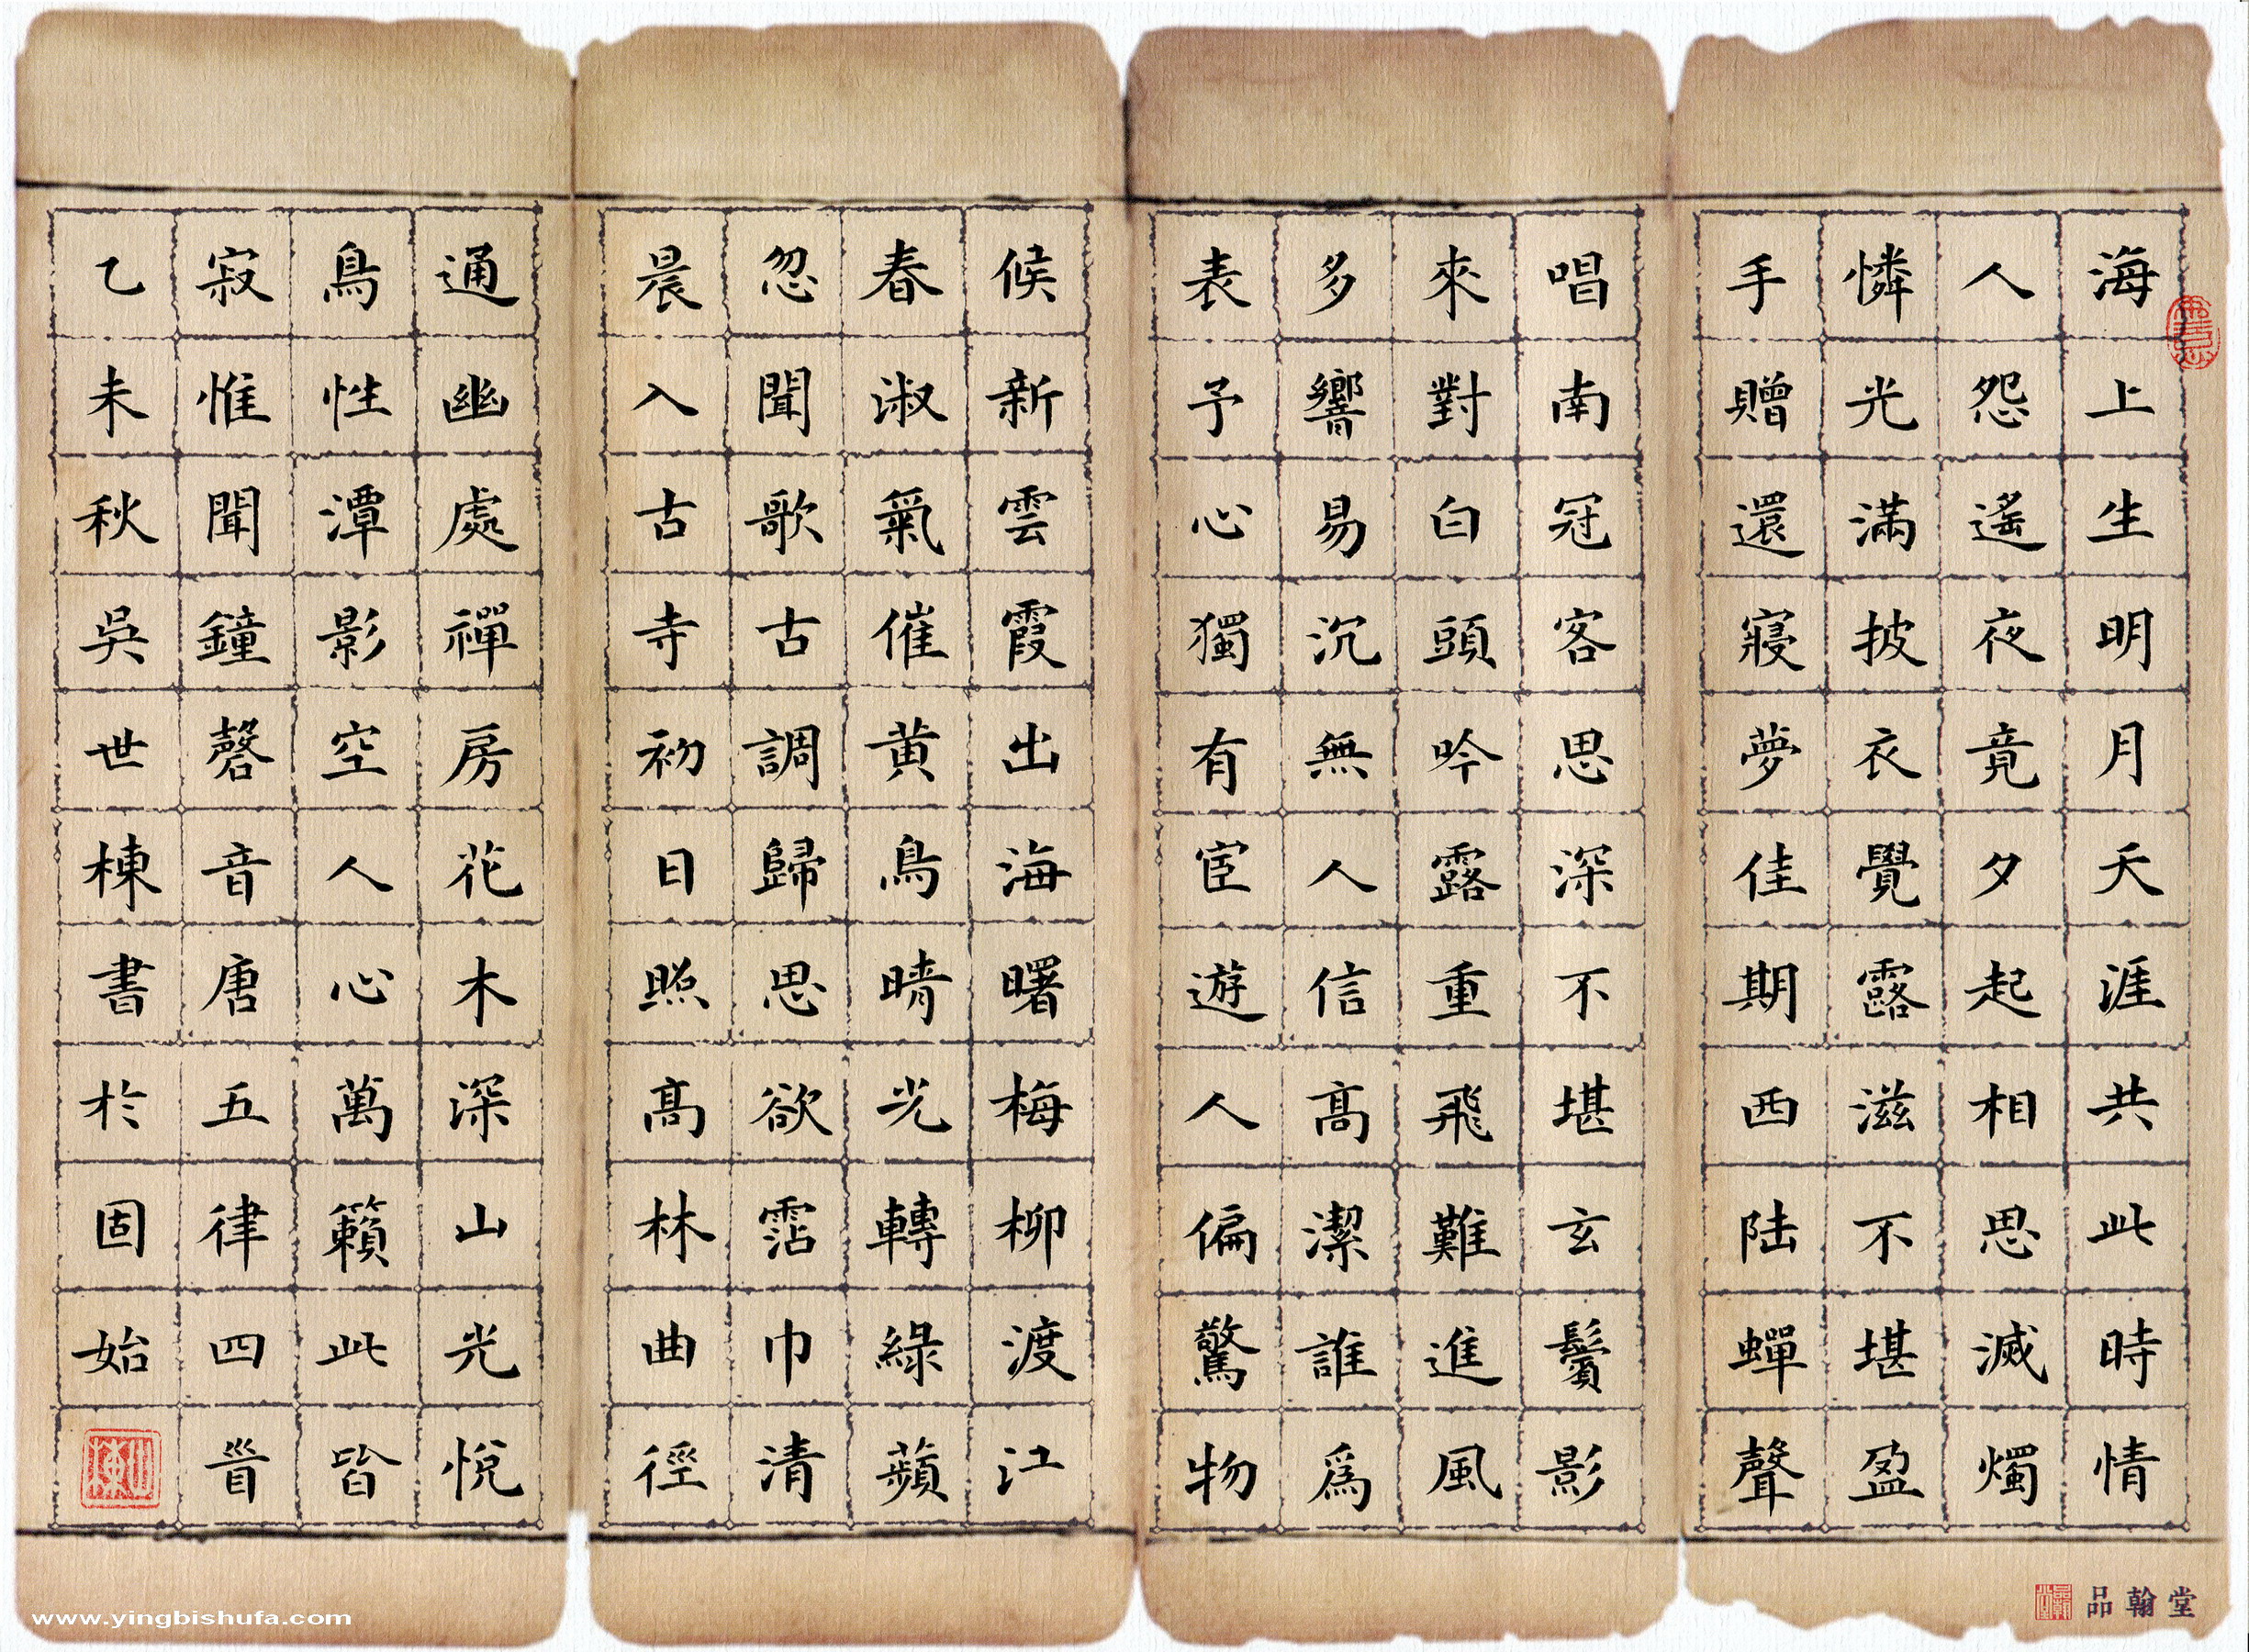 海上生明月天涯共此時情
人怨遙夜竟夕起相思滅燭
憐光滿披衣覺露滋不堪盈
手贈還寢夢佳期西陆蟬聲
唱南冠客思深不堪玄鬢影
來對白頭吟露重飛難進風
多響易沉無人信高潔誰爲
表予心獨有宦遊人偏驚物
候新雲霞出海曙梅柳渡江
春淑氣催黄鳥晴光轉綠蘋
忽聞歌古調歸思欲霑巾清
晨入古寺初日照高林曲徑
通幽處禪房花木深山光悅
鳥性潭影空人心萬籟此皆
寂惟聞鐘磬音唐五律四首
乙未秋吳世棟書於固始
品翰堂
www.yingbishufa.com